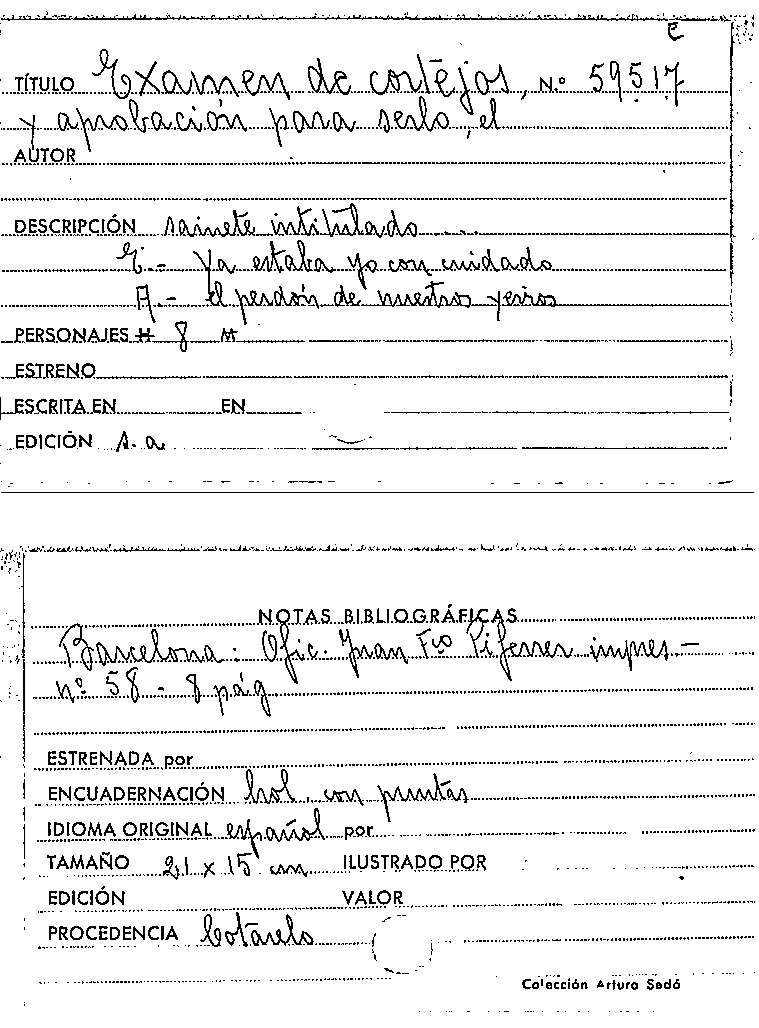 C
TÍTULO Examen de cortejos, N.º 59517
y aprobación para serlo, el
AUTOR
DESCRIPCIÓN sainete intitulado....
E.- Ya estaba yo con cuidado
A.- el perdón de nuestros yerros
PERSONAJES H 8 M
ESTRENO
ESCRITA EN EN
EDICIÓN s.a
NOTAS BIBLIOGRÁFICAS
Barcelona: Ofic. Juan Fco Piferrer impres-
nº 58 - 8 pág
ESTRENADA por
ENCUADERNACIÓN hol. con puntas
IDIOMA ORIGINAL español por
TAMAÑO 21 x 15 cm ILUSTRADO POR
EDICIÓN VALOR
PROCEDENCIA Cotarelo
Colección Arturo Sedó